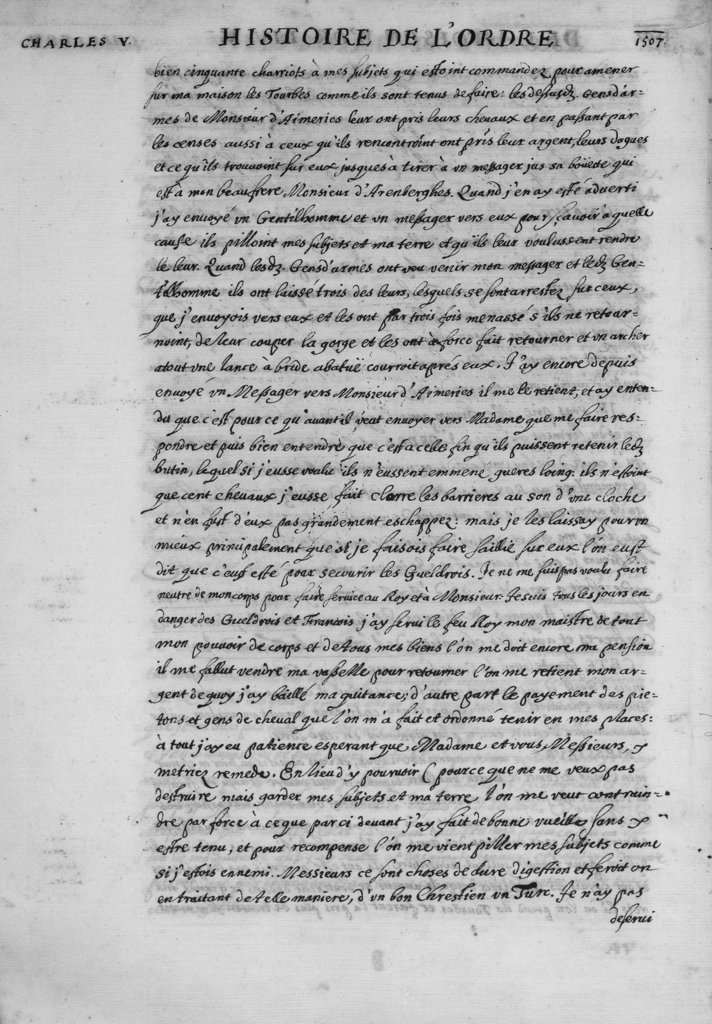 CHARLES V. HISTOIRE DE L'ORDRE 1507.
bien cinquante charriots à mes subjets qui estoint commandez pour amener
sur ma maison les Tourbes comme ils sont tenus de faire: les desusdz. Gensd'ar-
mes de Monsieur d'Aimeries leur ont pris leurs chevaux et en passant par
les censes aussi à ceux qu'ils rencontroint ont pris leur argent, leurs dagues
et ce qu'ils trouvoint sur eux jusques à tirer à un messager jus sa boüeste qui
est à mon beaufrere Monsieur d'Arenberghes. Quand j'en ay esté adverti
j'ay envoyé un Gentilhomme et un messager vers eux pour sçavoir à quelle
cause ils pilloint mes subjets et ma terre et qu'ils leur voulussent rendre
le leur. Quand lesdz. Gensd'armes ont veu venir mon messager et ledz Gen-
tilhomme ils ont laissé trois des leurs, lesquels se sont arrestez sur ceux,
que j'envoyois vers eux et les ont par trois fois menassé s'ils ne retour-
noint, de leur couper la gorge et les ont à force fait retourner et un archer
atout une lance à bride abatuë courroit aprés eux. J'ay encore depuis
envoyé un Messager vers Monsieur d'Aimeries il me le retient, et ay enten-
du que c'est pour ce qu'avant il veut envoyer vers Madame que me faire res-
pondre et puis bien entendre que c'est a celle fin qu'ils puissent retenir ledz
butin, lequel si j'eusse voulu ils n'eussent emmené gueres loing: ils n'estoint
que cent chevaux j'eusse fait clorre les barrieres au son d'une cloche
et n'en fust d'eux pas grandement eschappez: mais je les laissay pour un
mieux principalement que si je faisois faire saillie sur eux l'on eust
dit que c'eust esté pour secourir les Gueldrois. Je ne me suis pas voulu faire
neutre de mon corps pour faire service au Roy et à Monsieur. Je suis tous les jours en
danger des Gueldrois et François j'ay servi le feu Roy mon maistre de tout
mon pouvoir de corps et de tous mes biens l'on me doit encore ma pension
il me fallut vendre ma vasselle pour retourner l'on me retient mon ar-
gent de quoy j'ay baillé ma quitance; d'autre part le payement des pie-
tons et gens de cheval que l'on m'a fait et ordonné tenir en mes places:
à tout j'ay eu patience esperant que Madame et vous, Messieurs, y
metriez remede. En lieu d'y pourvoir (pource que ne me veux pas
destruire mais garder mes subjets et ma terre l'on me veut contrain-
dre par force à ce que par ci devant j'ay fait de bonne vueille sans y
estre tenu, et pour recompense l'on me vient piller mes subjets comme
si j'estois ennemi. Messieurs ce sont choses de dure digestion et feroit on
en traitant de telle maniere, d'un bon Chrestien un Turc. Je n'ay pas
deservi